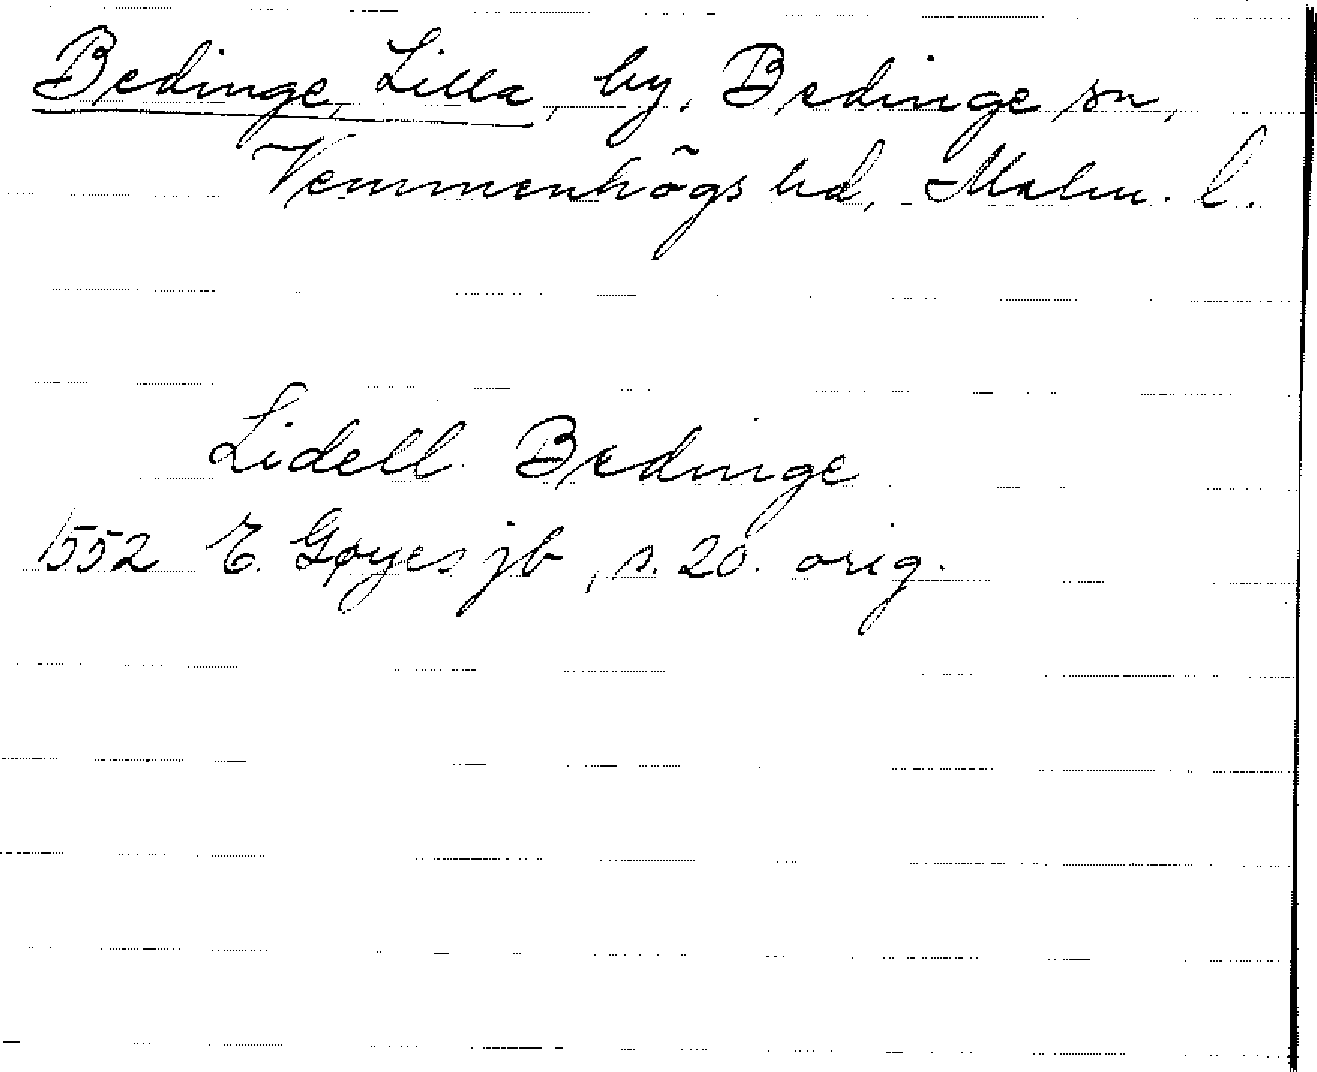 Bedinge, Lilla, by, Bedinge sn,
Vemmenhögs hd, Malm. l.
Lidell Bedinge
1552 E. Gøyes jb, s. 20. orig.